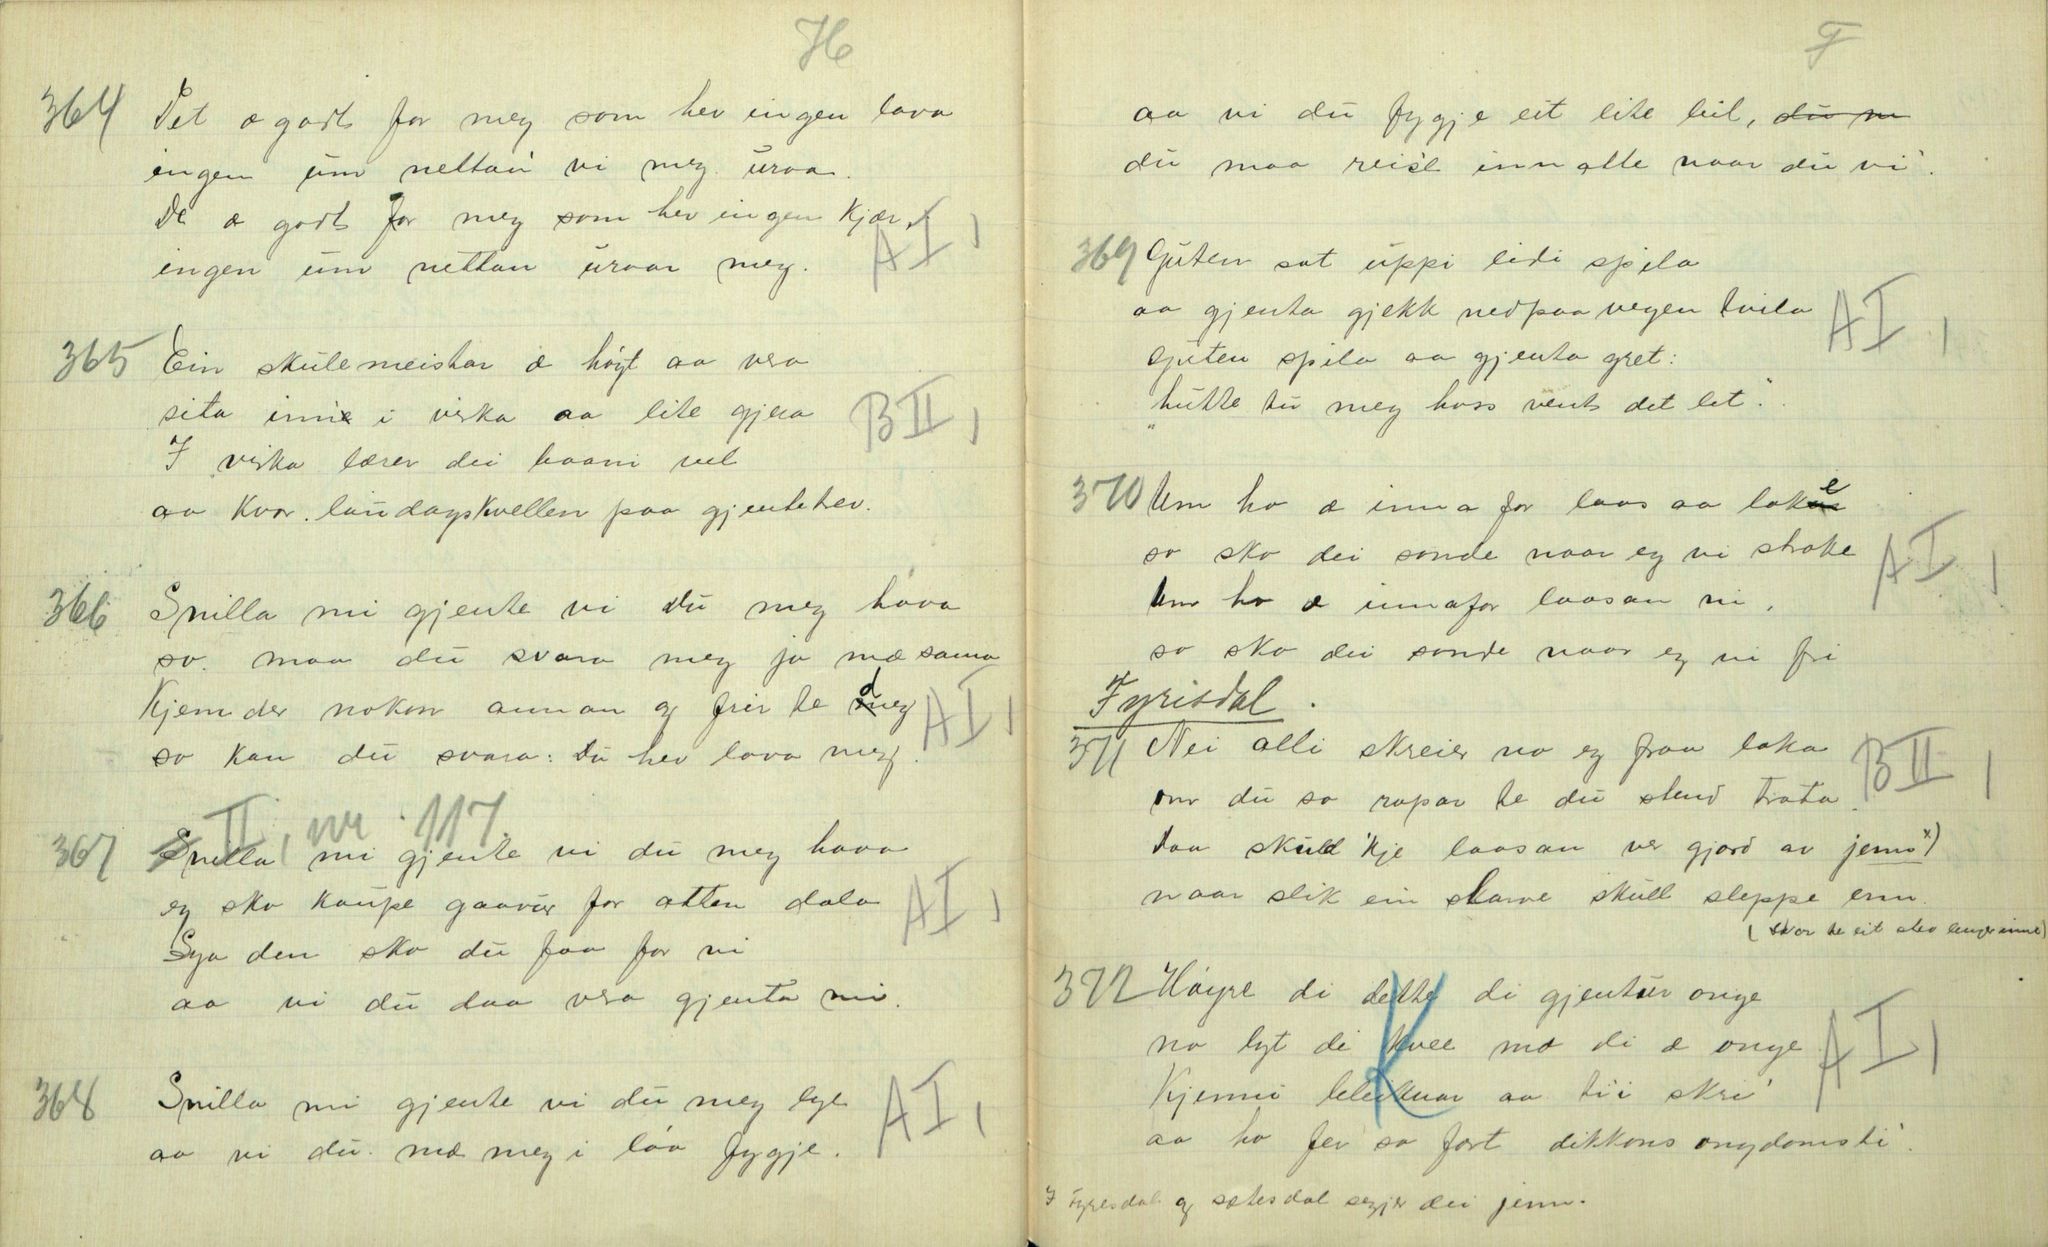 H
364 Det æ godt for meg som hev ingen lova
ingen um nettan vi meg uroa.
De æ godt for meg som hev ingen kjær,
ingen um nettan uroar meg.
AI,
365 Ein skulemeistar æ høgt aa vra
sita inne i virka aa lite gjera
BII,
I virka lærer dei baani vel
aa kvar laudagskvellen paa gjentetrev.
366 Snilla mi gjente vi du meg hava
so maa du svara meg ja mæ sama
Kjem der nokon annan og frir te deg
AI,
so kan du svara: Du hev lova meg.
II, nr 117.
367 Snilla mi gjente vi du meg hava
eg ska kaupe gaavur for atten dala
AI,
Sya den ska du faa for ni
aa vi du daa vera gjenta mi.
368 Snilla mi gjente vi du meg lye
AI,
aa vi du mæ meg i løa fygje.
F
aa vi du fygje eit lite bil, du m
du maa reise inn atte naar du vi'.
369 Guten sat uppi lidi spila
aa gjenta gjekk nedpaa vegen tvila
AI,
Guten spila aa gjenta gret:
"hutte tu meg hoss vent det let".
370 Um ho æ inna for laas aa loke
so ska dei sande naar eg vi stroke
AI,
Um ho æ innafor laasan ni,
so ska dei sande naar eg vi fri
Fyrisdal.
371 Nei alli skreier no eg fraa laka
BII,
om du so ropar te du stend trata.
Daa skuld 'kje laasan ver gjord av jenn x)
naar slik ein slarve skull sleppe enn.
(Svar te eit stev lenger inne)
372 Høyre di dette di gjentur onge
no lyt di kvee mæ di æ onge
AI,
K
Kjemi leikuar aa tii skri'
aa ho fer so fort dikkans ongdomsti'.
I Fyresdal og sætesdal segjer dei jenn.